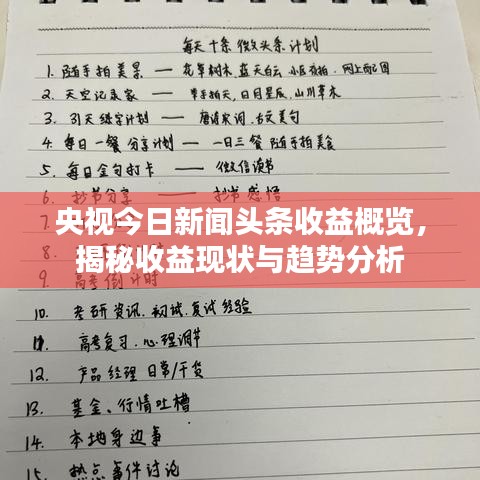 每天十条微头条计划
1. 随手拍美景 — 花草树木,蓝天白云,小区夜拍,网上配图
2. 天空记录家 — 举手拍天,日月星辰,山川草木
3. 31天练字计划 — 唐诗宋词,古文美句
4. 每日一餐分享计划 — 一日三餐 随手拍美食
5. 每日金句打卡 — 微信读书
6. 抄书分享 — 抄书感悟
央视今日新闻头条收益概览,
揭秘收益现状与趋势分析
9. 高考倒计时
10. 考研资讯.初试.复试经验
11. 高考复习.心理调节
12. 产品经理日常/干货
13. 基金、行情吐槽
14. 本地身边事
15. 热点事件讨论